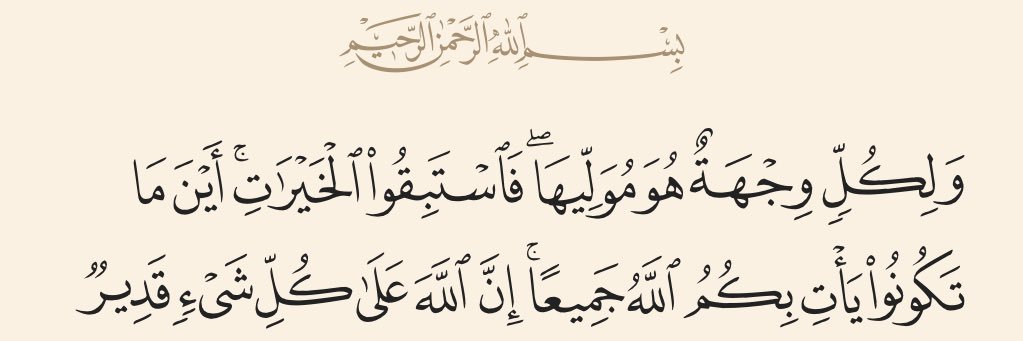 بِسْمِ ٱللَّهِ ٱلرَّحْمَٰنِ ٱلرَّحِيمِ
وَلِكُلٍّ وِجْهَةٌ هُوَ مُوَلِّيهَا ۖ فَٱسْتَبِقُوا۟ ٱلْخَيْرَٰتِ ۚ أَيْنَ مَا
تَكُونُوا۟ يَأْتِ بِكُمُ ٱللَّهُ جَمِيعًا ۚ إِنَّ ٱللَّهَ عَلَىٰ كُلِّ شَىْءٍ قَدِيرٌ